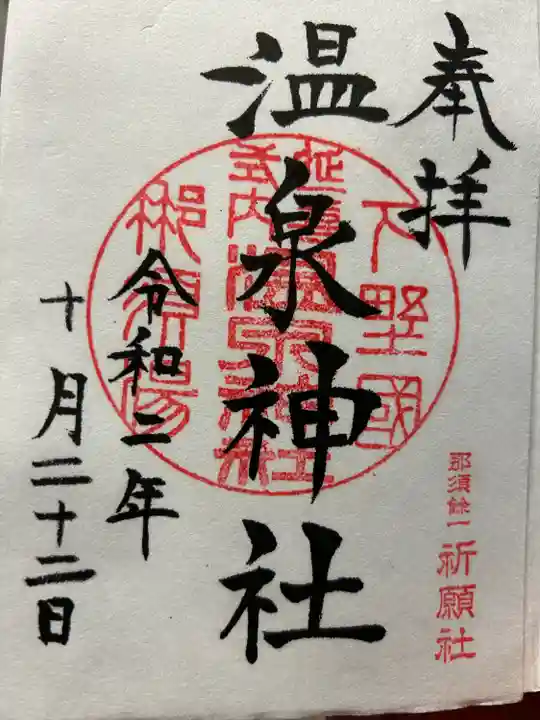 奉拝
下野國
延喜式内
温泉神社
温泉神社
那須湯
令和二年
十月二十二日
那須餘一
祈願社